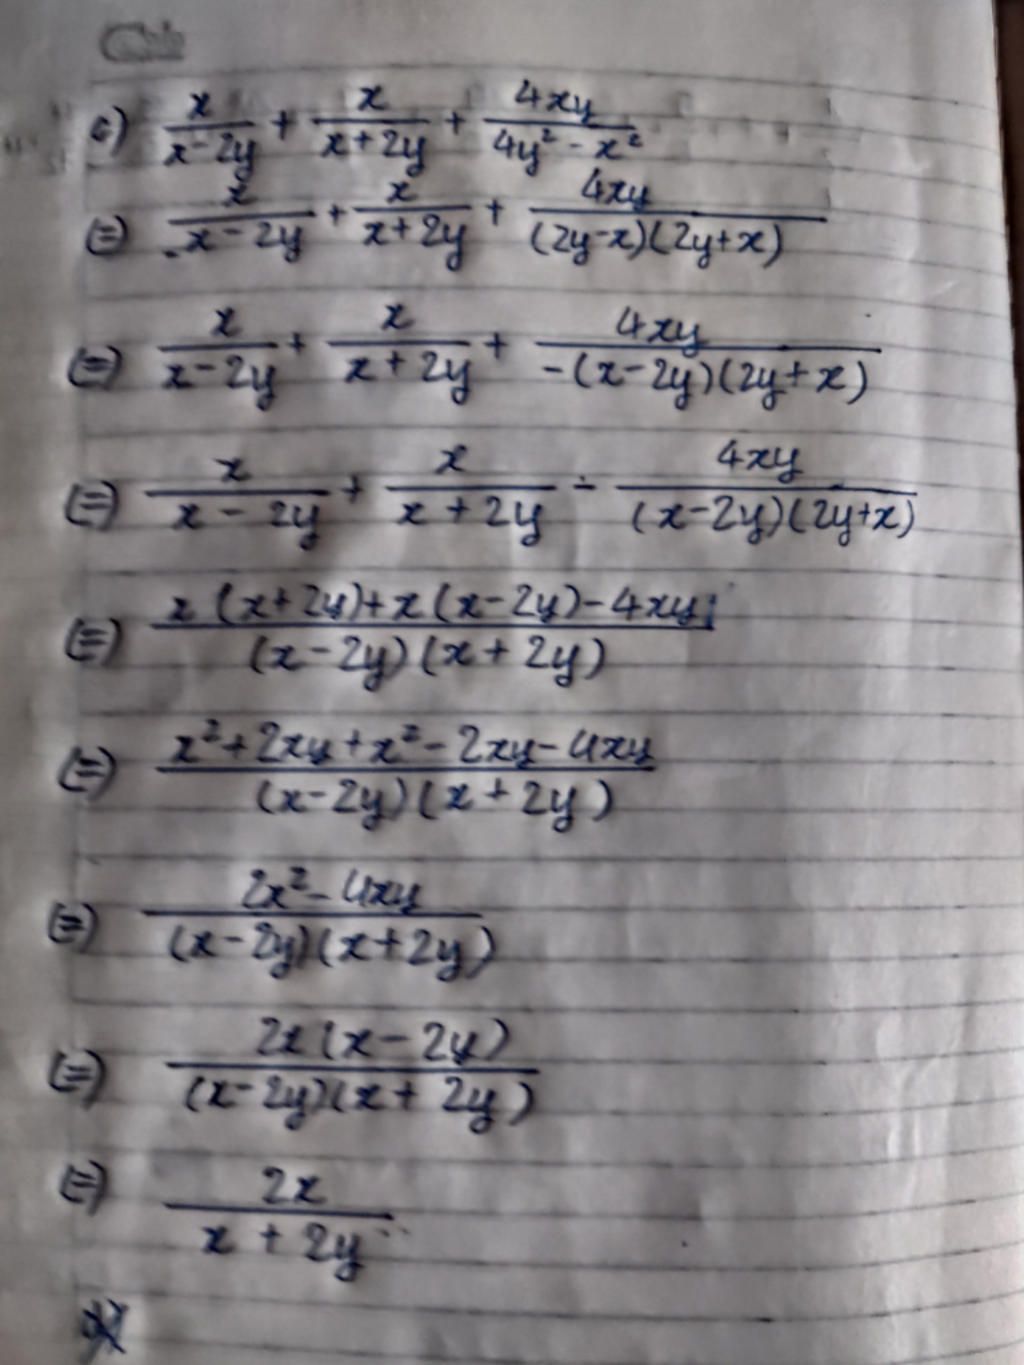 c) x/(x-2y) + x/(x+2y) + 4xy/(4y²-x²)
(=) x/(x-2y) + x/(x+2y) + 4xy/((2y-x)(2y+x))
(=) x/(x-2y) + x/(x+2y) + 4xy/(-(x-2y)(2y+x))
(=) x/(x-2y) + x/(x+2y) - 4xy/((x-2y)(2y+x))
(=) (x(x+2y)+x(x-2y)-4xy)/((x-2y)(x+2y))
(=) (x²+2xy+x²-2xy-4xy)/((x-2y)(x+2y))
(=) (2x²-4xy)/((x-2y)(x+2y))
(=) 2x(x-2y)/((x-2y)(x+2y))
(=) 2x/(x+2y)